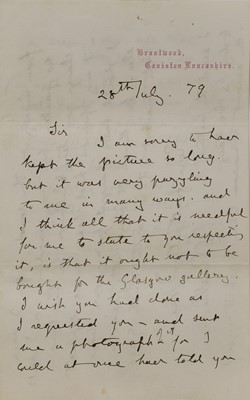 Brantwood,
Coniston Lancashire.
28th July. 79
Sir
I am sorry to have
kept the picture so long.
but it was very puzzling
to me in many ways. and
I think all that it is needful
for me to state to you respecting
it, is that it ought not to be
bought for the Glasgow gallery.
I wish you had done as
I requested you – and sent
me a photograph of it for I
could at once have told you